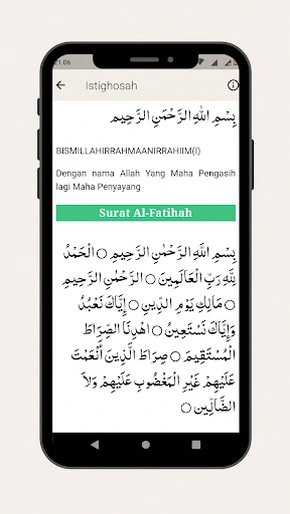 21.06
Istighosah
بِسْمِ اللهِ الرَّحْمٰنِ الرَّحِيمِ
BISMILLAHIRRAHMAANIRRAHIIM(I)
Dengan nama Allah Yang Maha Pengasih
lagi Maha Penyayang
Surat Al-Fatihah
بِسْمِ اللهِ الرَّحْمٰنِ الرَّحِيمِ ○ الْحَمْدُ
لِلّٰهِ رَبِّ الْعَالَمِينَ ○ الرَّحْمٰنِ الرَّحِيمِ
○ مَالِكِ يَوْمِ الدِّينِ ○ إِيَّاكَ نَعْبُدُ
وَإِيَّاكَ نَسْتَعِينُ ○ اهْدِنَا الصِّرَاطَ
الْمُسْتَقِيمَ ○ صِرَاطَ الَّذِينَ أَنْعَمْتَ
عَلَيْهِمْ غَيْرِ الْمَغْضُوبِ عَلَيْهِمْ وَلاَ
الضَّالِّينَ ○